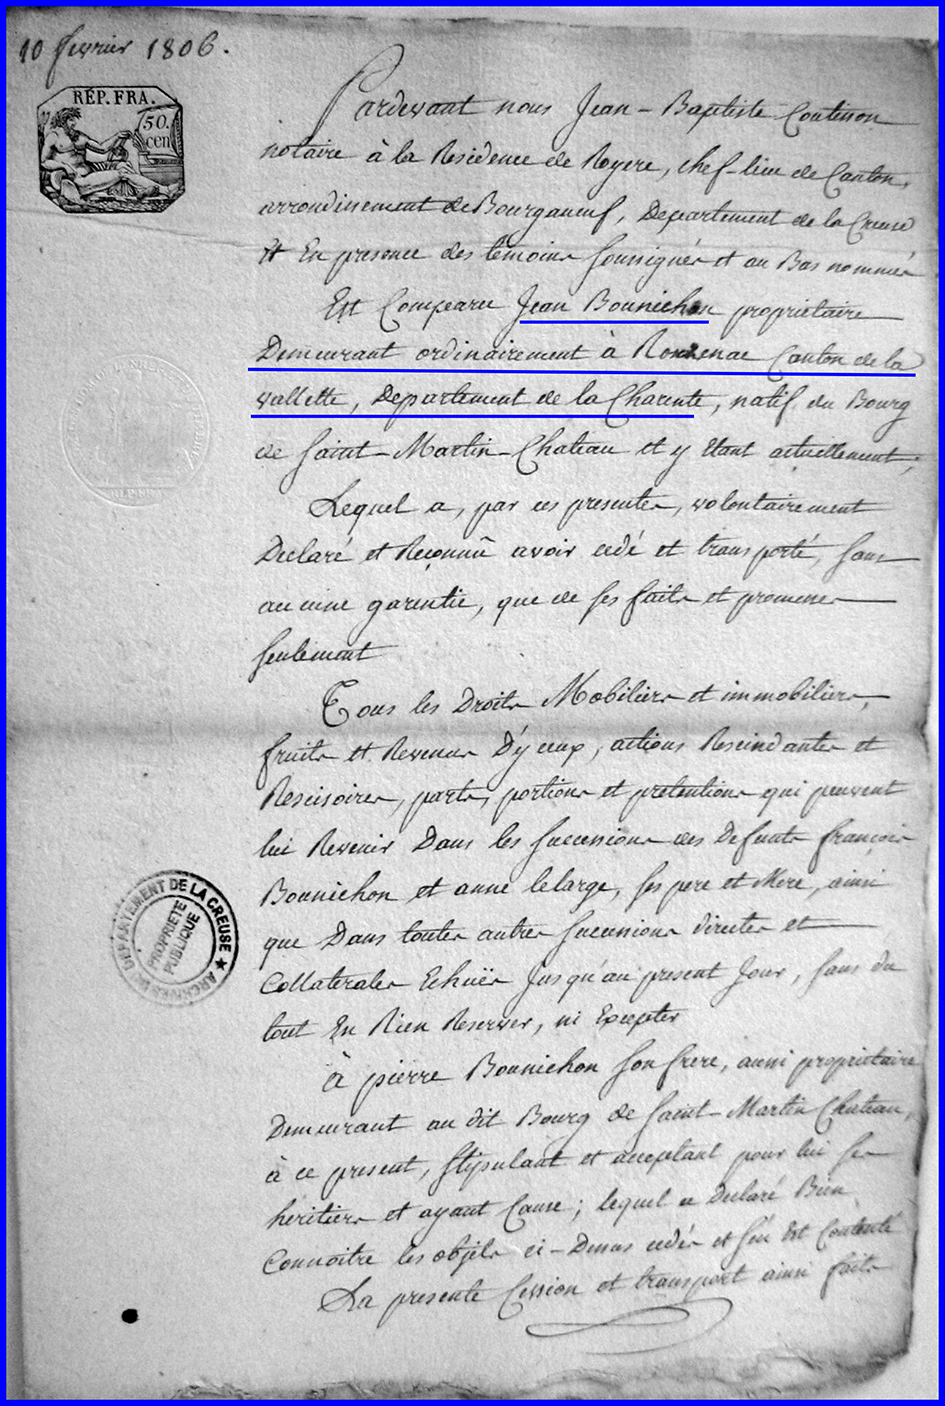 10 fevrier 1806.
RÉP. FRA.
50.
cen
Pardevant nous Jean-Baptiste Coutisson
notaire à la Residence de Royere, chef-lieu de Canton,
arrondissement de Bourganeuf, Departement de la Creuse
Et En presence des temoins soussignés et au Bas nommés
Est Comparu Jean Bounichon propriétaire
Demeurant ordinairement à Canton de la
vallette, Departement de la Charente, natif du Bourg
de Saint-Martin-Chateau et y Etant actuellement;
Lequel a, par ces presentes, volontairement
Declaré et Reconnû avoir cedé et transporté, sans
aucune garentie, que de ses faits et promesses
seulement
Tous les Droits Mobiliers et immobiliers,
fruits et Revenus D'yceux, actions Rescindantes et
Rescisoires, parts, portions et pretentions qui peuvent
lui Revenir Dans les successions des Defunts françois
Bounichon et anne lelarge, ses pere et Mere, ainsi
que Dans toutes autres successions directes et
Collaterales Echuës Jusqu'au present Jour, sans du
tout En Rien Reserver, ni Excepter
à pierre Bounichon son frere, aussi propriétaire
Demeurant au dit Bourg de Saint-Martin Chateau,
à ce present, stipulant et acceptant pour lui ses
heritiers et ayant Cause; lequel a Declaré Bien
Connoitre les objets ci-Dessus cedés et s'en Est Contenté
La presente Cession et transport ainsi faits
DÉPARTEMENT DE LA CREUSE ★ ARCHIVES
PROPRIÉTÉ
PUBLIQUE